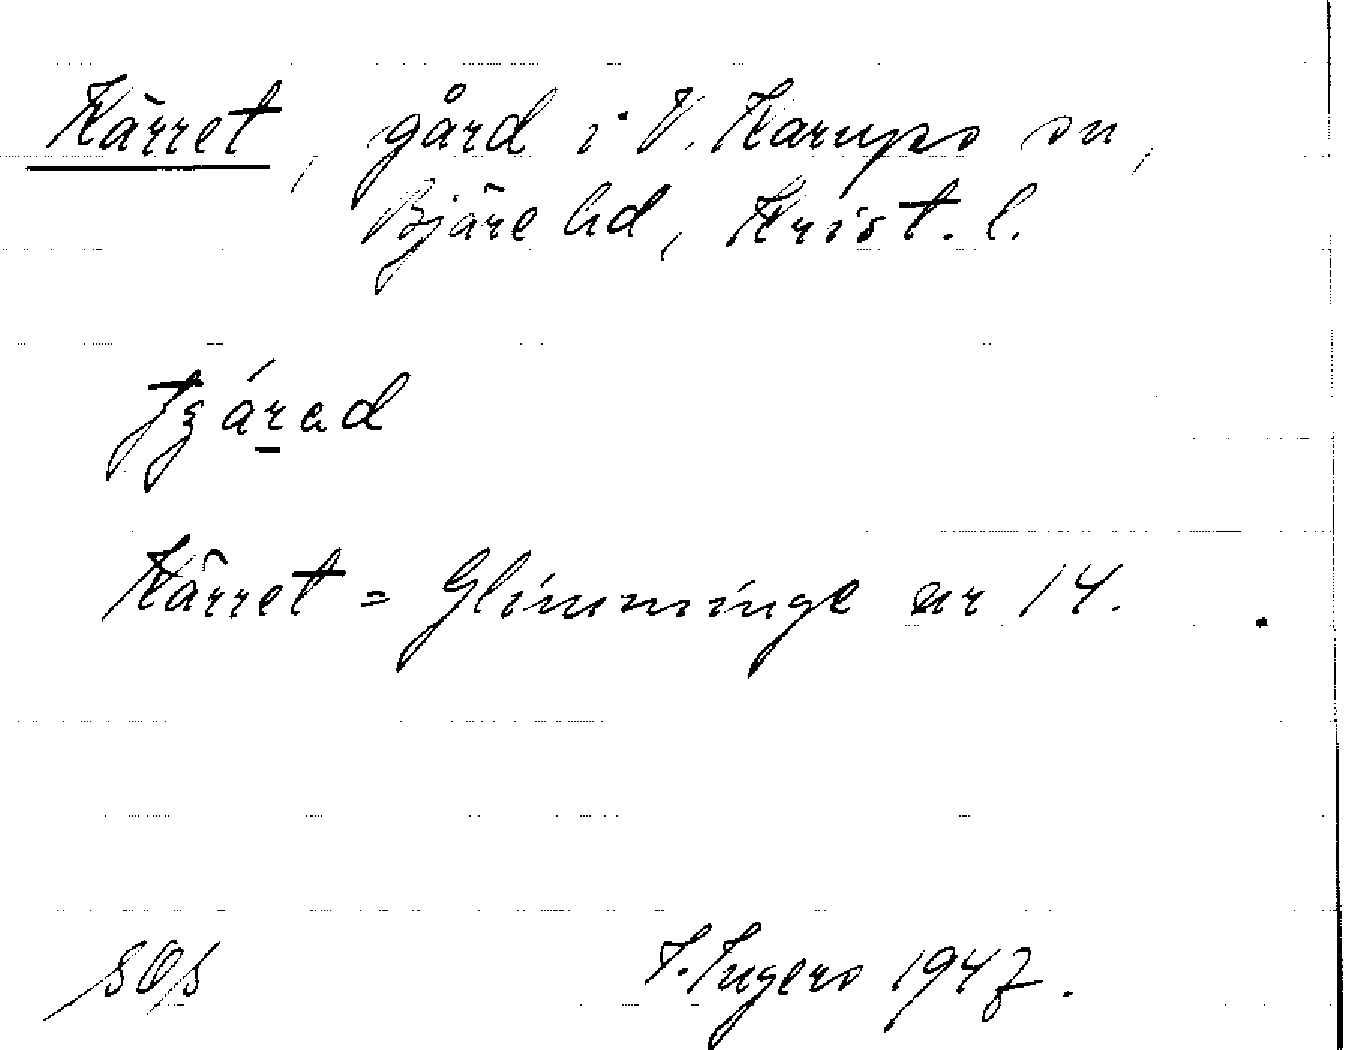 Kärret, gård i V. Karups sn,
Bjäre hd, Krist. l.
Kärret = Glimminge nr 14.
I. Ingers 1947.